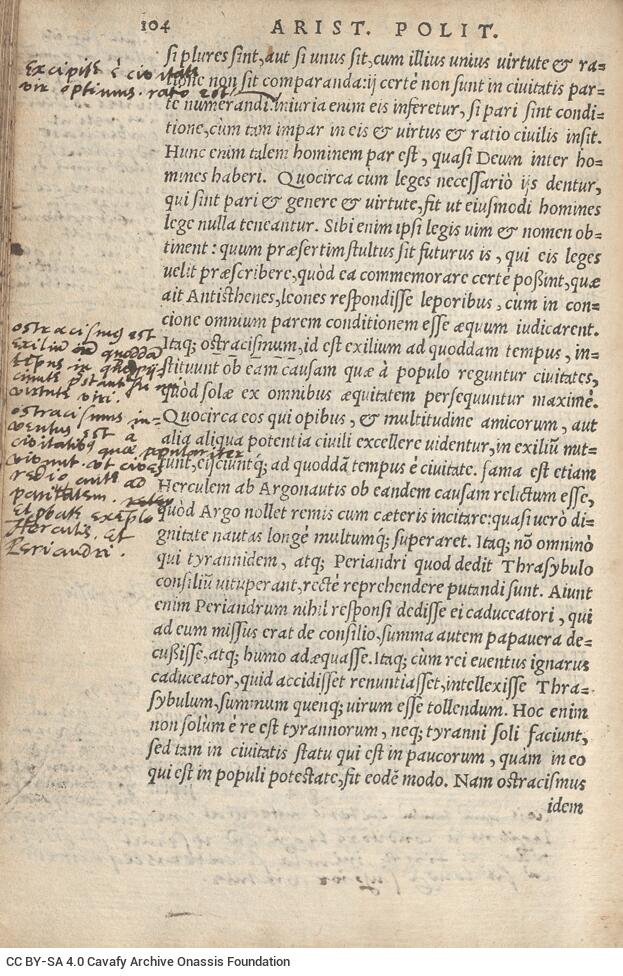 104 ARIST. POLIT.
si plures sint, aut si unus sit, cum illius unius virtute & ra=
tione non sit comparanda: ij certè non sunt in ciuitatis par=
te numerandi. iniuria enim eis inferetur, si pari sint condi=
tione, cùm tam impar in eis & uirtus & ratio ciuilis insit.
Hunc enim talem hominem par est, quasi Deum inter ho=
mines haberi. Quocirca cùm leges necessariò ijs dentur,
qui sint pari & genere & uirtute, fit ut eiusmodi homines
lege nulla teneantur. Sibi enim ipsi legis uim & nomen ob=
tinent: quum præsertim stultus sit futurus is, qui eis leges
uelit præscribere, quòd ea commemorare certè poßint, quæ
ait Antisthenes, leones respondisse leporibus, cùm in con=
cione omnium parem conditionem esse æquum iudicarent.
Itaq; ostracismum, id est exilium ad quoddam tempus, in=
stituunt ob eam causam quæ à populo reguntur ciuitates,
quòd solæ ex omnibus æquitatem persequuntur maximè.
Quocirca eos qui opibus, & multitudine amicorum, aut
alia aliqua potentia ciuili excellere uidentur, in exiliũ mit=
tunt, eijciuntq; ad quoddã tempus è ciuitate. fama est etiam
Herculem ab Argonautis ob eandem causam relictum esse,
quòd Argo nollet remis cum cæteris incitare: quasi uerò di=
gnitate nautas longè multumq; superaret. Itaq; nõ omninò
qui tyrannidem, atq; Periandri quod dedit Thrasybulo
consiliũ uituperant, rectè reprehendere putandi sunt. Aiunt
enim Periandrum nihil responsi dedisse ei caduceatori, qui
ad eum missus erat de consilio, summa autem papauera de=
cußisse, atq; humo adæquasse. Itaq; cùm rei euentus ignarus
caduceator, quid accidisset renuntiasset, intellexisse Thra=
sybulum, summum quenq; uirum esse tollendum. Hoc enim
non solùm è re est tyrannorum, neq; tyranni soli faciunt,
sed tam in ciuitatis statu qui est in paucorum, quàm in eo
qui est in populi potestate, fit eodẽ modo. Nam ostracismus
idem
Excipitr è civitate
vir optimus. ratio est
ostracismus est
exiliũ ad quoddã
tẽpus in
virtute viri.
ostracismus in=
ventus est a
civitatibus quæ populariter
vivunt. ut cives
ad
paritatem.
Et probat exẽplo
Herculis. Et
Periandri.
CC BY-SA 4.0 Cavafy Archive Onassis Foundation